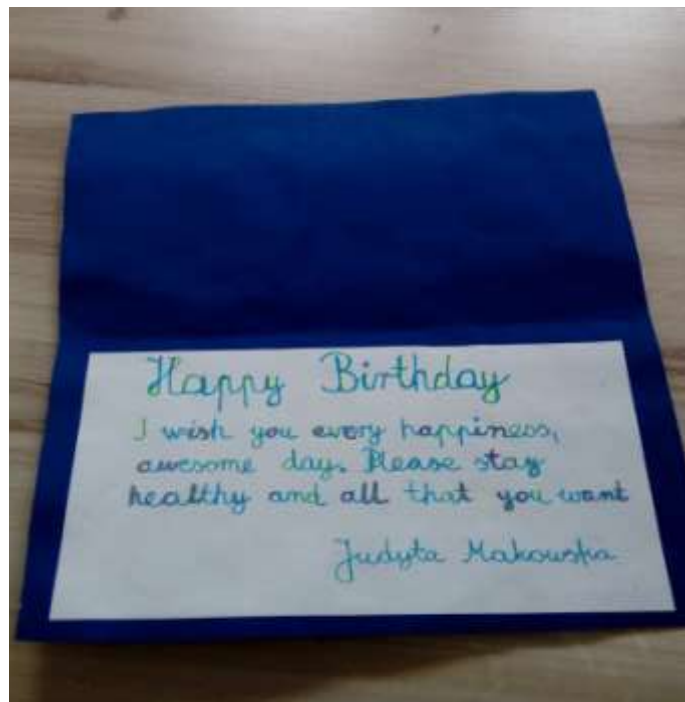 Happy Birthday
I wish you every happiness,
awesome day. Please stay
healthy and all that you want
Judyta Makowska